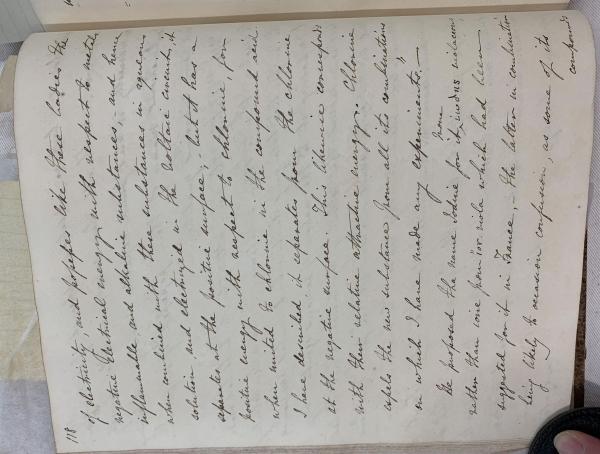 118
of electricity and possesses like those bodies the
negative electrical energy with respect to metals
inflammable and alkaline substances, and hence
when combined with these substances in aqueous
solution and electrized in the voltaic circuit, it
separates at the positive surface; but it has a
positive energy with respect to chlorine, for
when united to chlorine in the compound acid
I have described it separates from the chlorine
at the negative surface. This likewise corresponds
with their relative attractive energy. Chlorine
expels the new substance from all its combinations
on which I have made any experiments."—
He proposed the name Iodine for it, from violaceous
rather than ione from ιον viola which had been
suggested for it in France.— The latter in combination
being likely to occasion confusion, as some of its
compounds